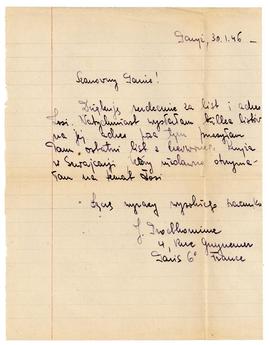 Paryż, 30.1.46 –
Szanowny Panie!
Dziękuję serdecznie za list i adres
Zosi. Natychmiast wysłałam kilka listów
na jej adres, poza tym przesyłam
Panu ostatni list z
w Szwajcarji, który niedawno otrzyma-
łam na temat Zosi.
Łączę wyrazy wysokiego szacunku
J. Prodhomme
4, Rue Guynemer
Paris 6e
France